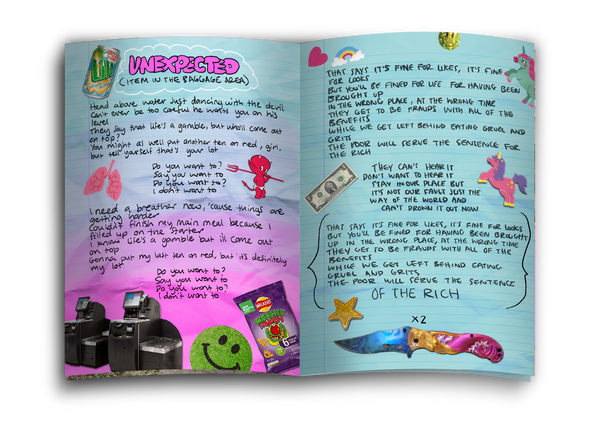 UNEXPECTED
(ITEM IN THE BAGGAGE AREA)
Head above water just dancing with the devil
Can't ever be too careful he wants you on his
level
They say that life's a gamble, but who'll come out
on top?
You might as well put another ten on red, girl,
but tell yourself that's your lot
Do you want to?
Say you want to
Do you want to?
I don't want to
I need a breather now, 'cause things are
getting harder
Couldn't finish my main meal because I
filled up on the starter
I know life's a gamble but ill come out
on top
Gonna put my last ten on red, but it's definitely
my lot
Do you want to?
Say you want to
Do you want to?
I don't want to
WALKERS
MONSTER
MUNCH
6
THAT SAYS IT'S FINE FOR LIKES, IT'S FINE
FOR LOOKS
BUT YOU'LL BE FINED FOR LIFE FOR HAVING BEEN
BROUGHT UP
IN THE WRONG PLACE, AT THE WRONG TIME
THEY GET TO BE FRAUDS WITH ALL OF THE
BENEFITS
WHILE WE GET LEFT BEHIND EATING GRUEL AND
GRITS
THE POOR WILL SERVE THE SENTENCE FOR
THE RICH
THEY CAN'T HEAR IT
DON'T WANT TO HEAR IT
STAY IN OUR PLACE BUT
IT'S NOT OUR FAULT JUST THE
WAY OF THE WORLD AND
CAN'T DROWN IT OUT NOW
THAT SAYS IT'S FINE FOR LIKES, IT'S FINE FOR LOOKS
BUT YOU'LL BE FINED FOR HAVING BEEN BROUGHT
UP IN THE WRONG PLACE, AT THE WRONG TIME
THEY GET TO BE FRAUDS WITH ALL OF THE
BENEFITS
WHILE WE GET LEFT BEHIND EATING
GRUEL AND GRITS
THE POOR WILL SERVE THE SENTENCE
OF THE RICH
x2